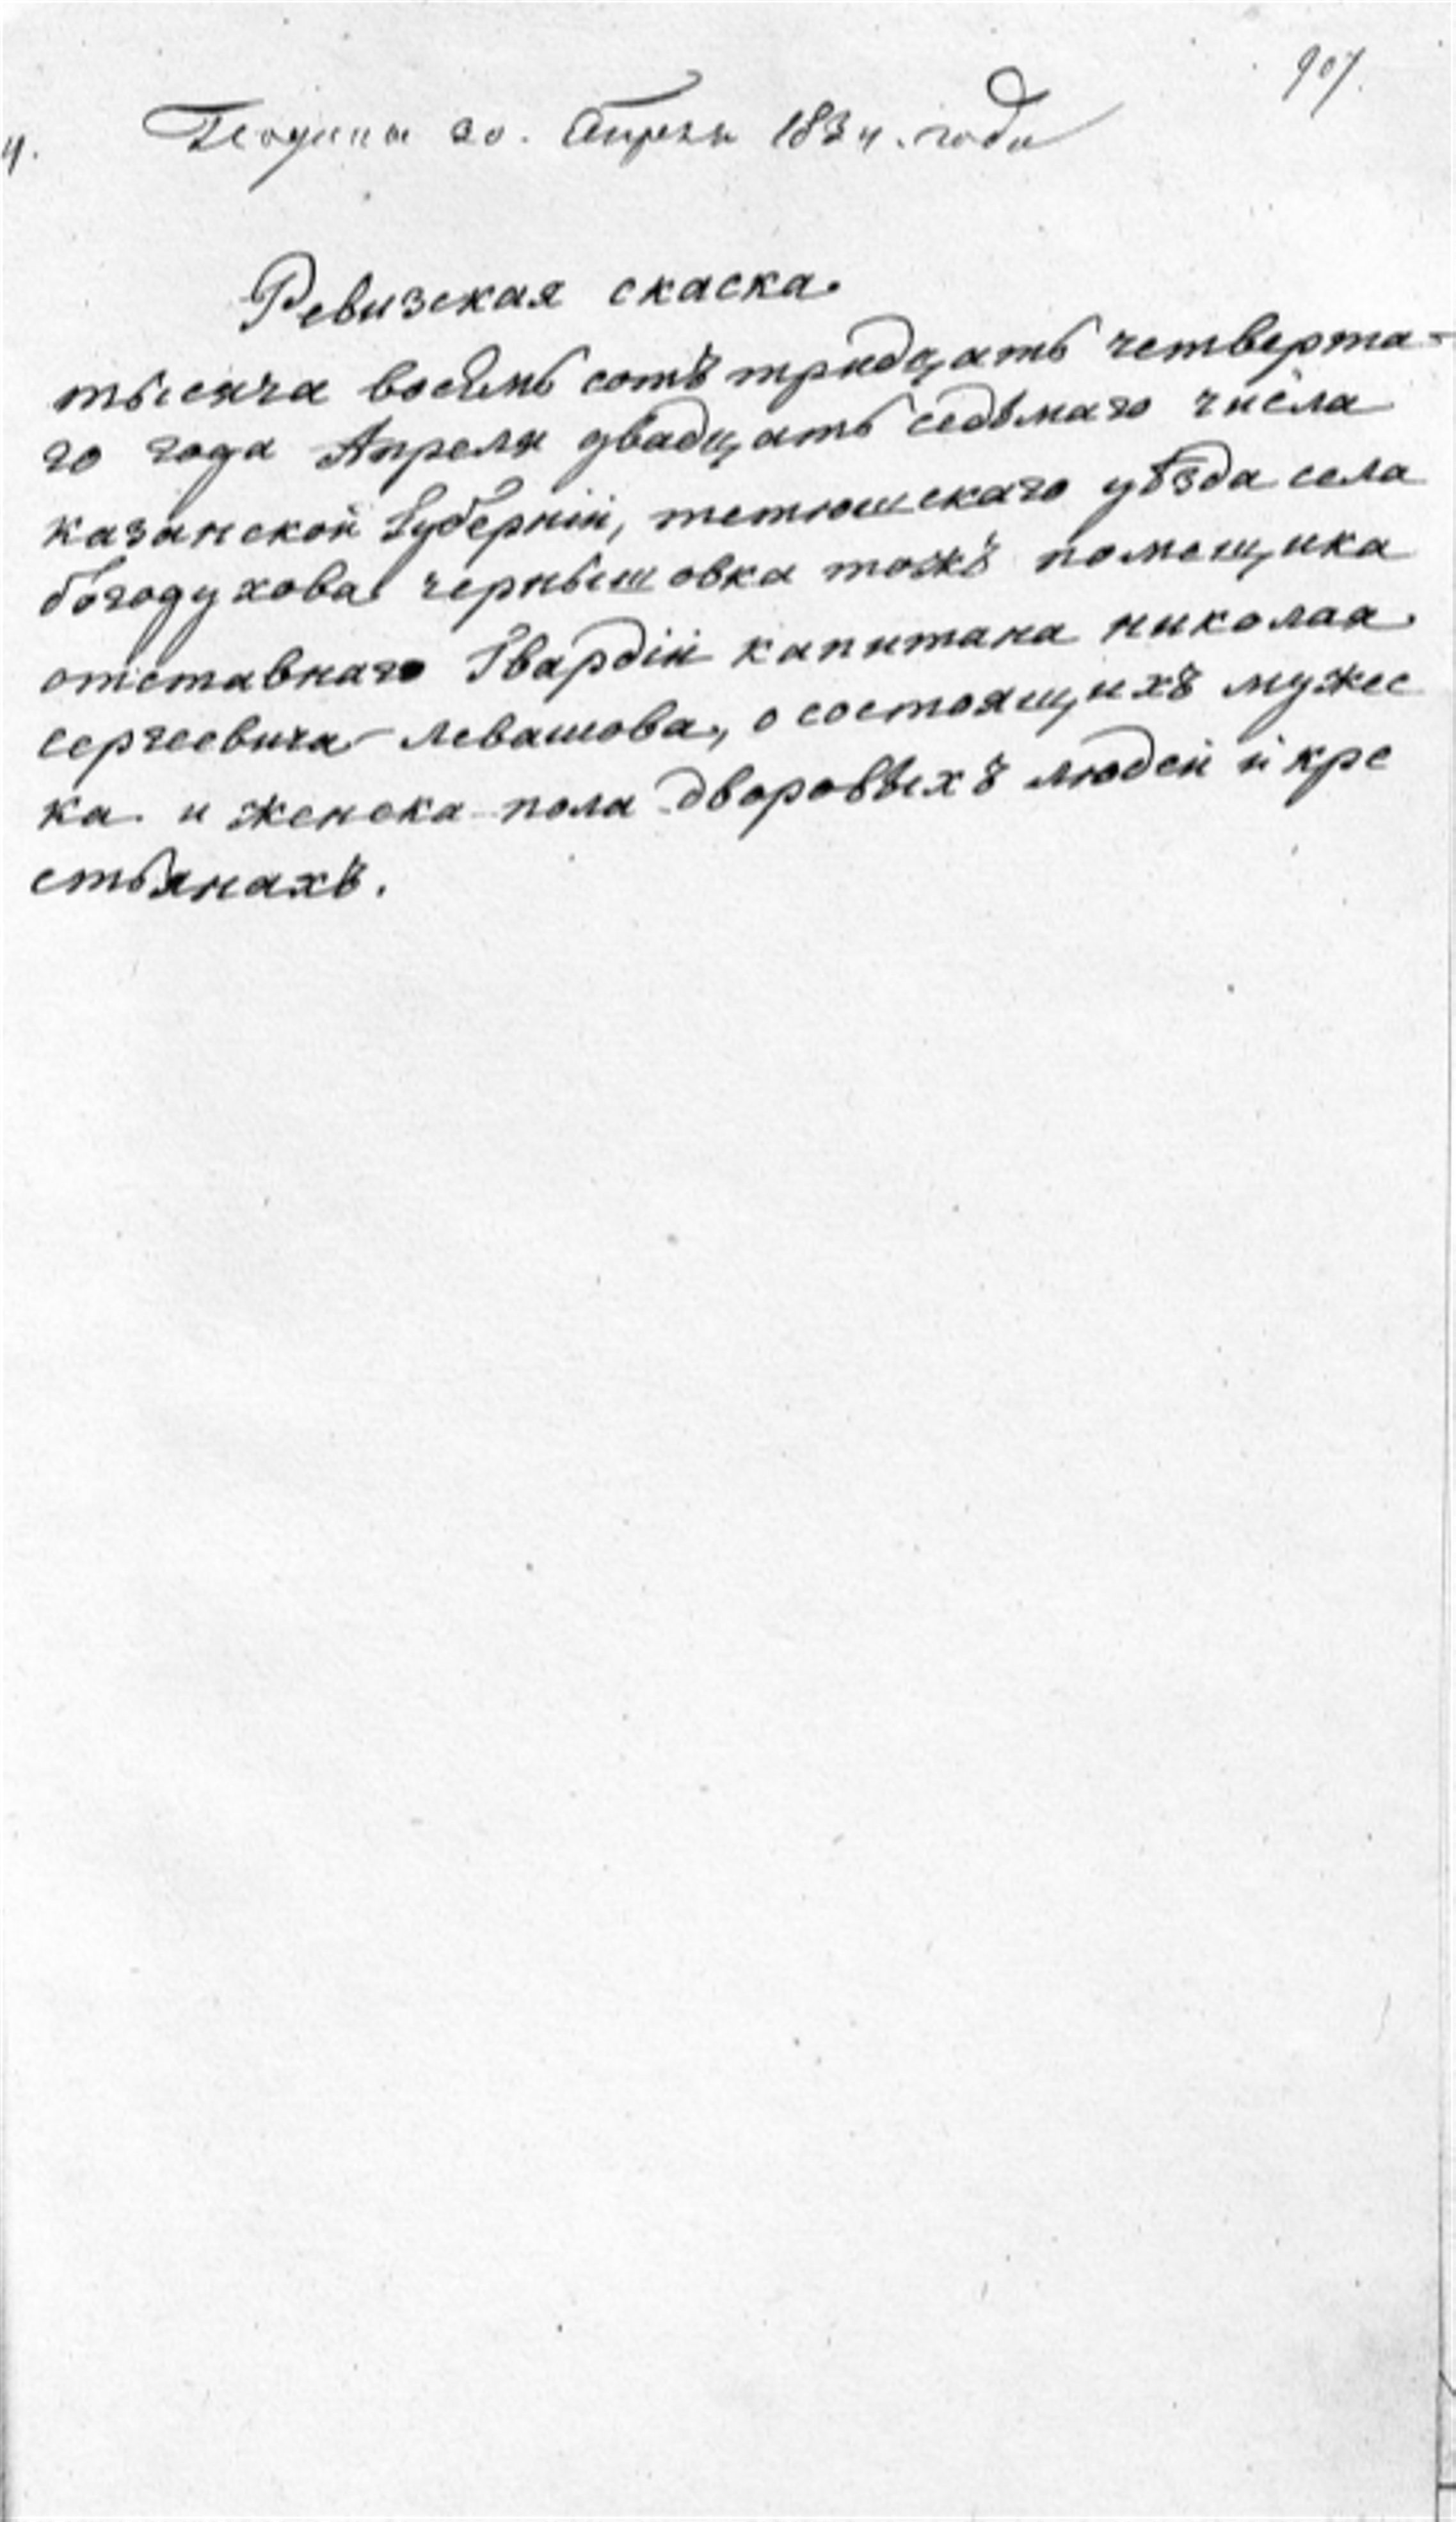 907.
Подана 30. Апреля 1834. года
Ревизская скаска.
тысяча восемь сотъ тридцать четверта-
го года Апреля двадцать седьмаго числа
казанской Губерніи, тетюшскаго уѣзда села
богодухова чернышовка тожъ помещика
отставнаго Гвардіи капитана николая
сергеевича левашова, о состоящихъ мужес
ка и женска пола дворовыхъ людей и кре
стьянахъ.